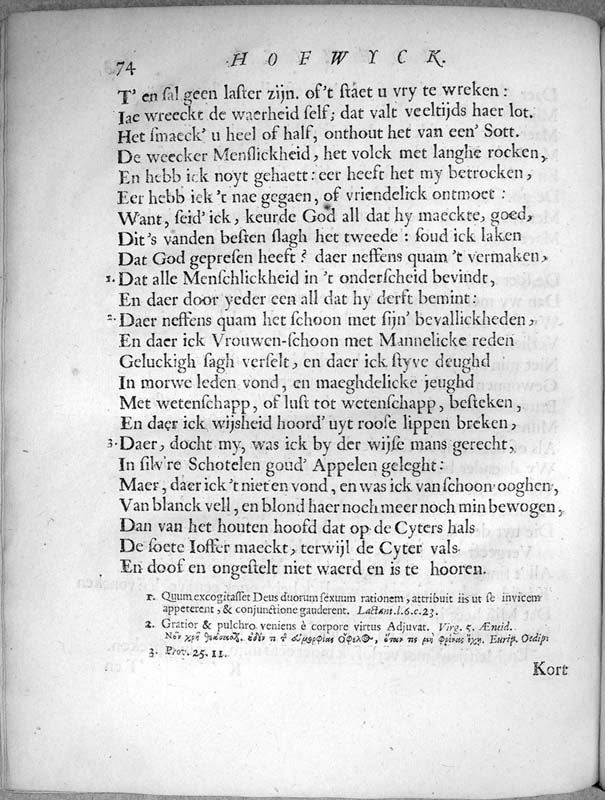 74 HOFWYCK.
T' en ſal geen laſter zijn. of 't ſtaet u vry te wreken:
Iae wreeckt de waerheid ſelf; dat valt veeltijds haer lot.
Het ſmaeck' u heel of half, onthout het van een' Sott.
De weecker Menſlickheid, het volck met langhe rocken,
En hebb ick noyt gehaett: eer heeft het my betrocken,
Eer hebb ick 't nae gegaen, of vriendelick ontmoet:
Want, ſeid' ick, keurde God all dat hy maeckte, goed,
Dit's vanden beſten ſlagh het tweede: ſoud ick laken
Dat God gepreſen heeft? daer neffens quam 't vermaken,
1. Dat alle Menſchlickheid in 't onderſcheid bevindt,
En daer door yeder een all dat hy derft bemint:
2. Daer neffens quam het ſchoon met ſijn' bevallickheden,
En daer ick Vrouwen-ſchoon met Mannelicke reden
Geluckigh ſagh verſelt, en daer ick ſtyve deughd
In morwe leden vond, en maeghdelicke jeughd
Met wetenſchapp, of luſt tot wetenſchapp, beſteken,
En daer ick wijsheid hoord' uyt rooſe lippen breken,
3. Daer, docht my, was ick by der wijſe mans gerecht,
In ſilv're Schotelen goud' Appelen geleght:
Maer, daer ick 't niet en vond, en was ick van ſchoon ooghen,
Van blanck vell, en blond haer noch meer noch min bewogen,
Dan van het houten hoofd dat op de Cyters hals
De ſoete Ioffer maeckt, terwijl de Cyter vals
En doof en ongeſtelt niet waerd en is te hooren.
1. Quum excogitaſſet Deus duorum ſexuum rationem, attribuit iis ut ſe invicem
appeterent, & conjunctione gauderent. Lactant. l. 6. c. 23.
2. Gratior & pulchro veniens è corpore virtus Adjuvat. Virg. 5. Æneid.
Eurip. Oedip.
3. Prov. 25. 11.
Kort